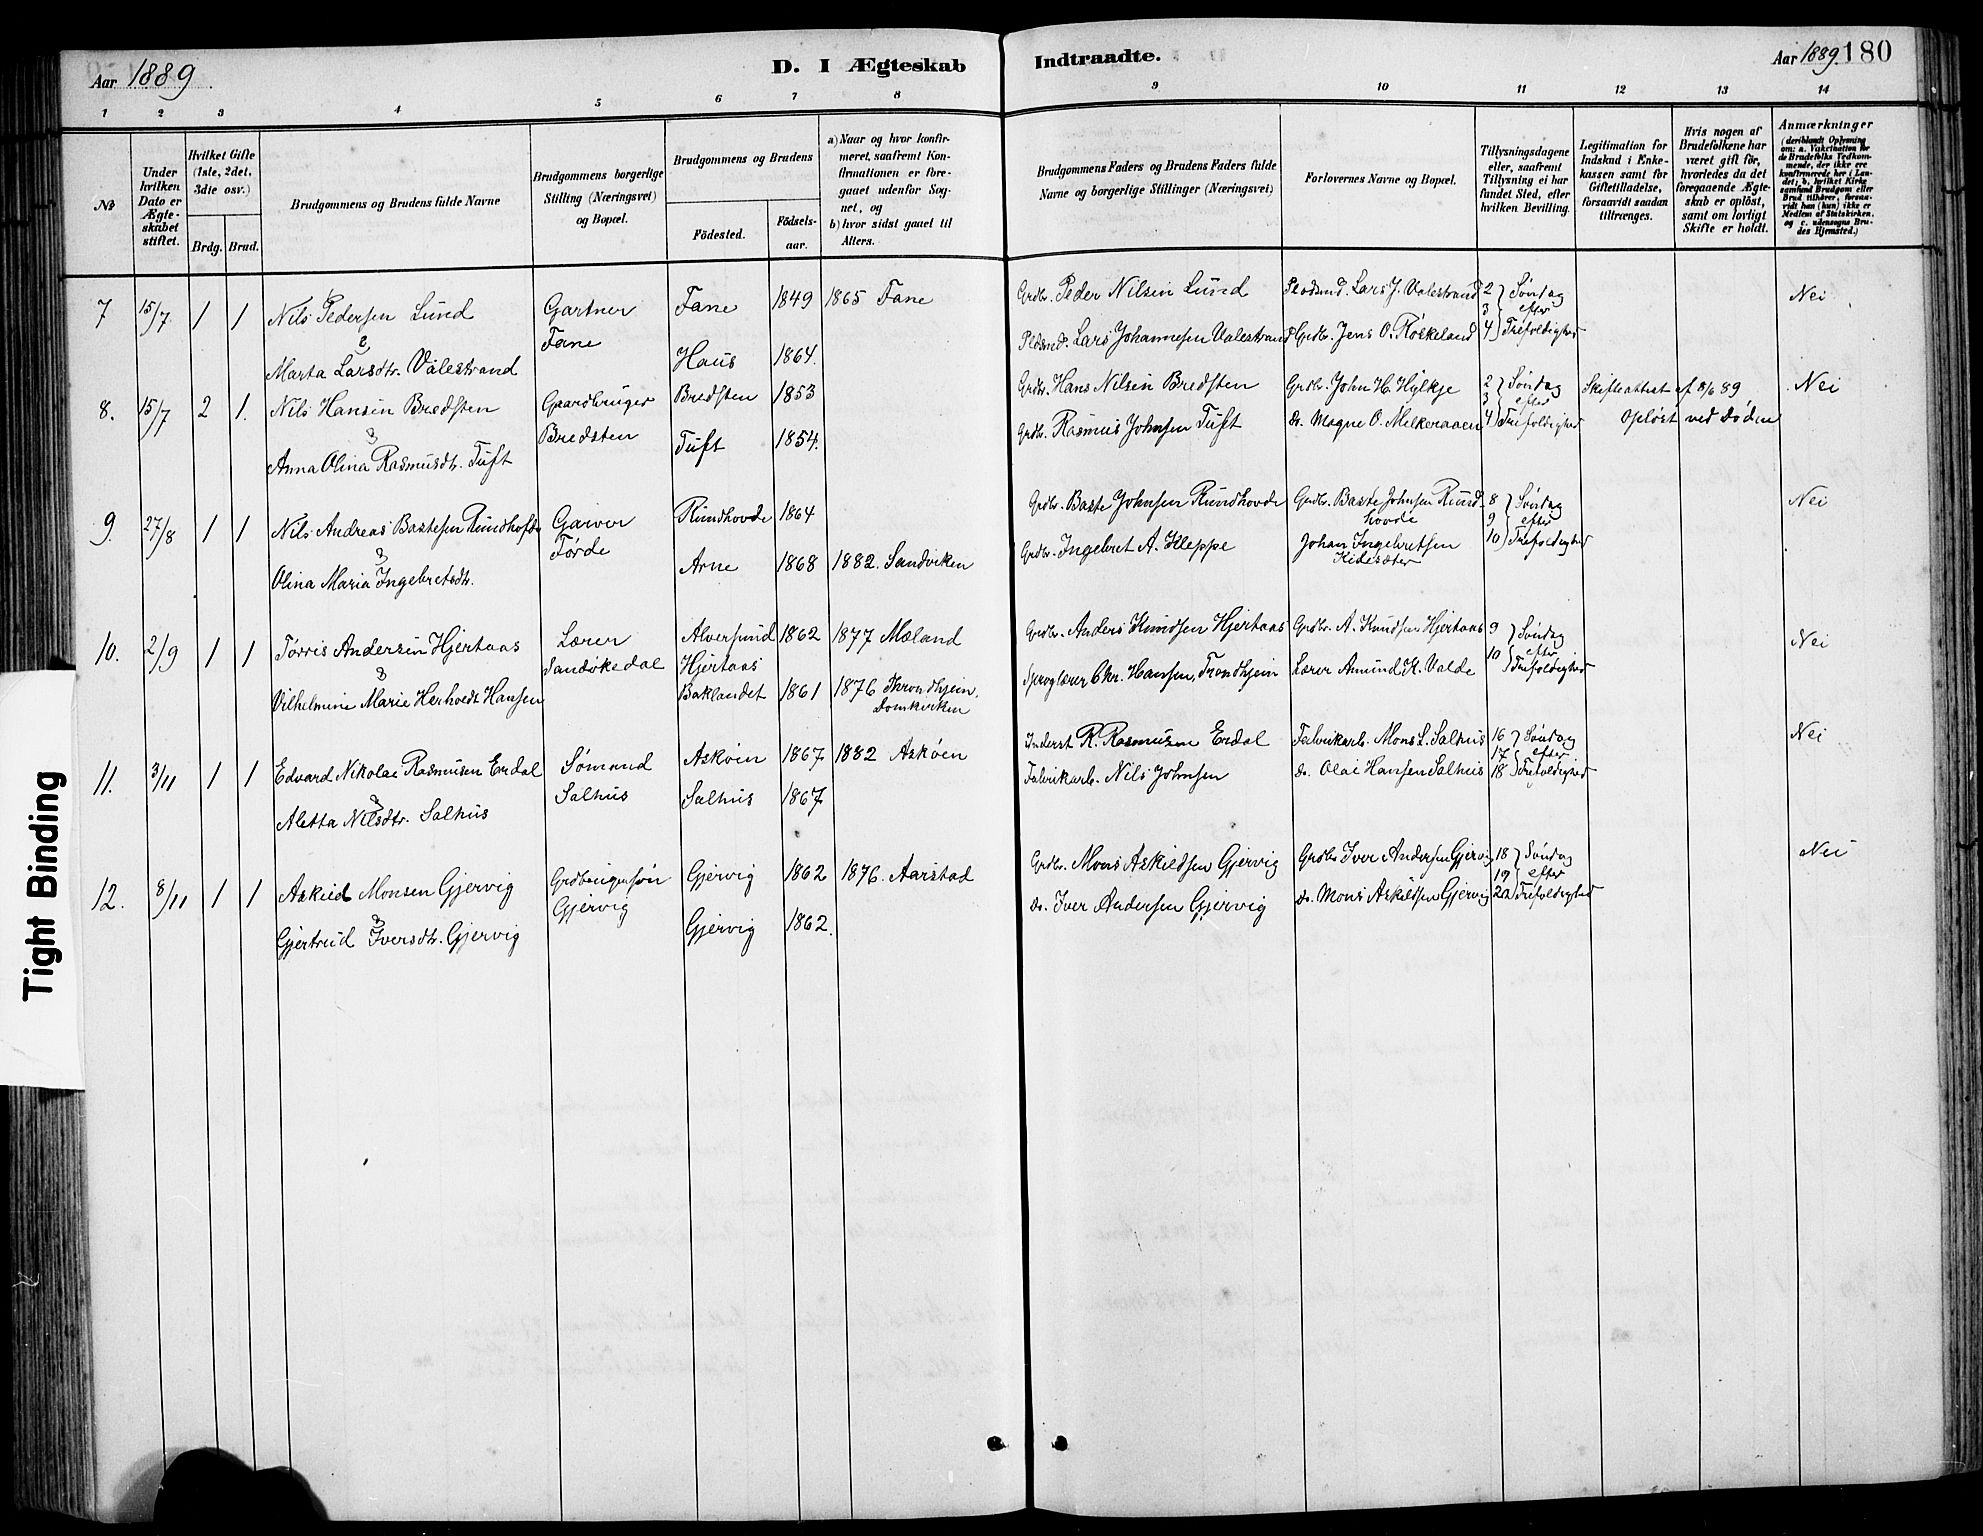 Aar 1889.
D. I Ægteskab
Indtraadte.
Aar 1889. 180
1 2 3 4 5 6 7 8 9 10 11 12 13 14
№
Under hvilken Dato er Ægteskabet stiftet.
Hvilket Gifte (1ste, 2det, 3die osv.)
Brdg. Brud.
Brudgommens og Brudens fulde Navne
Brudgommens borgerlige Stilling (Næringsvei) og Bopæl.
Brudgommens og Brudens
Födested.
Födselsaar.
a) Naar og hvor konfirmeret, saafremt Konfirmationen er foregaaet udenfor Sognet, og
b) hvor sidst gaaet til Alters.
Brudgommens Faders og Brudens Faders fulde Navne og borgerlige Stillinger (Næringsvei)
Forlovernes Navne og Bopæl.
Tillysningsdagene eller, saafremt Tillysning ei har fundet Sted, efter hvilken Bevilling.
Legitimation for Indskud i Enkekassen samt for Giftetilladelse, forsaavidt saadan tiltrænges.
Hvis nogen af Brudefolkene har været gift för, hvorledes da det foregaaende Ægteskab er oplöst, samt om lovligt Skifte er holdt.
Anmærkninger
(deriblandt Oplysning om: a. Vakcination for de Brudefolks Vedkommende, der ikke ere konfirmerede her i Landet; b. hvilket Kirkesamfund Brudgom eller Brud tilhører, forsaavidt han (hun) ikke er Medlem af Statskirken, og c. udensogns Brudes Hjemsted.)
7 15/7 1 1 Nils Pedersen Lund Gartner Fane Fane 1849 1865 Fane Grdbr. Peder Nilsen Lund Pladsmd. Lars J. Valestrand 2 3 4 Søndag efter Trefoldighed Nei
& Marta Larsdtr. Valestrand Haus 1864. Pldsmd. Lars Johannesen Valestrand Grdbr. Jens O. Röskeland
8. 15/7 2 1. Nils Hansen Bredsten Gaardbruger Bredsten Bredsten 1853 Grdbr. Hans Nilsen Bredsten Grdbr. John H. Hylkje 2 3 4 Søndag efter Trefoldighed Skifteattest af 8/6 89 Opløst ved Døden Nei
& Anna Olina Rasmusdtr. Tuft Tuft 1854. Grdbr. Rasmus Johnsen Tuft Do. Magne O. Melkeraaen
9. 27/8 1 1 Nils Andreas Bastesen Rundhofde Garver Førde Rundhovde 1864 Grdbr. Baste Johnsen Rundhovde Grdbr. Baste Johnsen Rundhovde 8 9 10 Søndag efter Trefoldighed Nei
& Olina Maria Ingebretsdtr. Arne 1868 1882. Sandviken Grdbr. Ingebret A. Kleppe Johan Ingebretsen
10. 2/9 1 1 Tørris Andersen Hjertaas Lærer Sandøkedal Alversund Hjertaas 1862 1877 Mæland Grdbr. Anders Knudsen Hjertaas Grdbr. A. Knudsen Hjertaas 9 10 Søndag efter Trefoldighed Nei
& Vilhelmine Marie Hansen Baklandet 1861 1876 Throndhjem, Domkirken Sproglærer Chr. Hansen, Trondhjem Lærer Amund K. Valde
11. 3/11 1 1 Edvard Nikolai Rasmusen Erdal Sømand Salhus Askøen 1867 1882 Askøen Inderst R. Rasmusen Erdal Fabrikarb. Mons L. Salhus 16 17 18 Søndag efter Trefoldighed Nei
& Aletta Nilsdtr. Salhus Salhus 1867 Fabrikarb. Nils Johnsen Do. Olai Hansen Salhus
12. 8/11 1 1 Askild Monsen Gjervig Grdbrugersøn Gjervig Gjervig 1862 1876. Aarstad Grdbr. Mons Askildsen Gjervig Grdbr Iver Andersen Gjervig 18 19 20 Søndag efter Trefoldighed Nei
& Gjertrud Iversdtr. Gjervig Gjervig 1862. Do. Iver Andersen Gjervig Do. Mons Askildsen Gjervig
Tight Binding